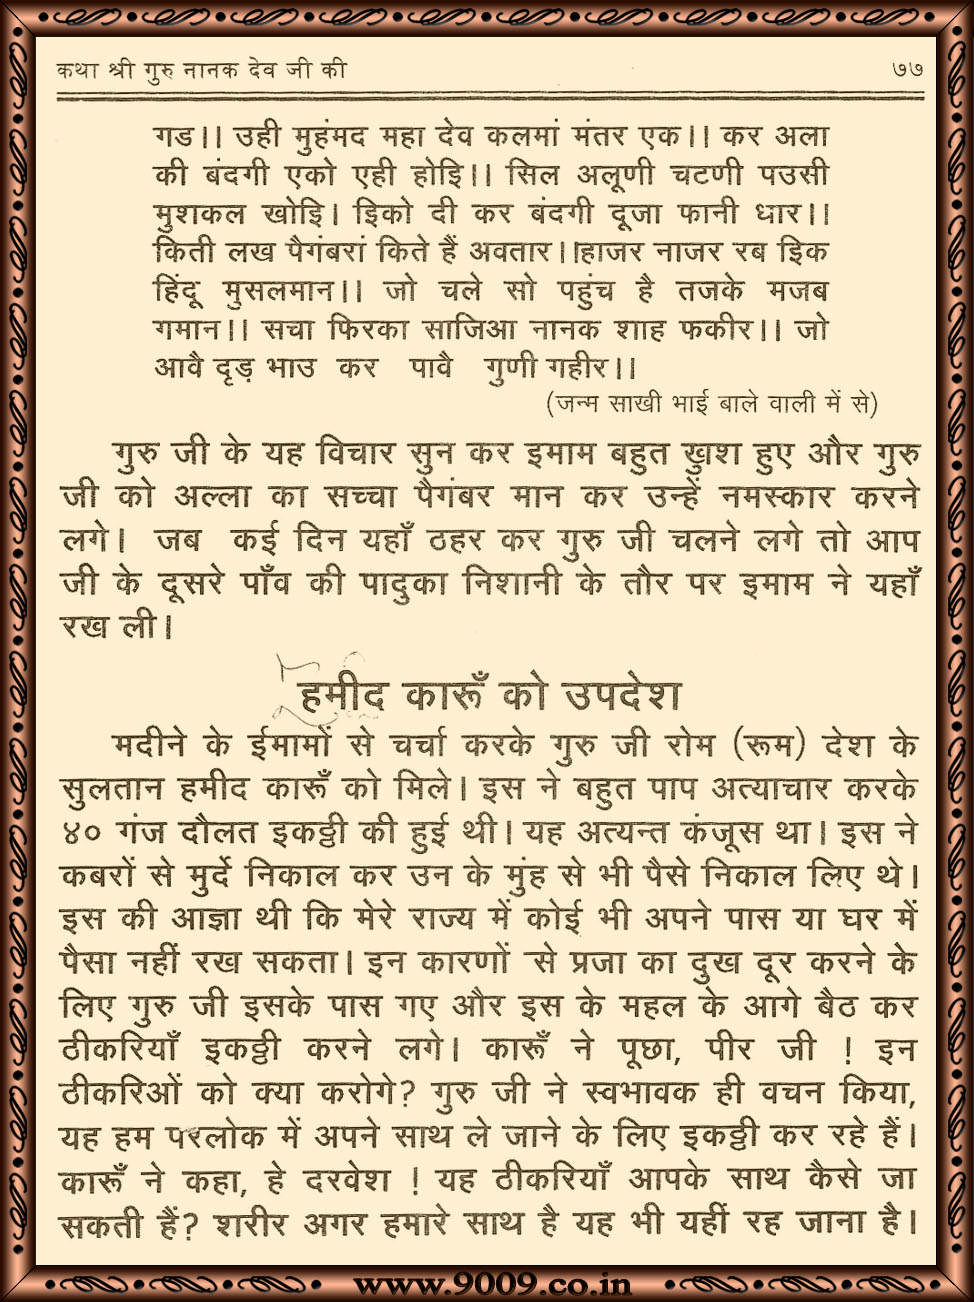 कथा श्री गुरु नानक देव जी की ७७
गड।। उही मुहंमद महा देव कलमां मंतर एक।। कर अला
की बंदगी एको एही होइि।। सिल अलूणी चटणी पउसी
मुशकल खोइि। इिको दी कर बंदगी दूजा फानी धार।।
किती लख पैगंबरां किते हैं अवतार।।हाजर नाजर रब इिक
हिंदू मुसलमान।। जो चले सो पहुंच है तजके मजब
गमान।। सचा फिरका साजिआ नानक शाह फकीर।। जो
आवै दृड़ भाउ कर पावै गुणी गहीर।।
(जन्म साखी भाई बाले वाली में से)
गुरु जी के यह विचार सुन कर इमाम बहुत खुश हुए और गुरु
जी को अल्ला का सच्चा पैगंबर मान कर उन्हें नमस्कार करने
लगे। जब कई दिन यहाँ ठहर कर गुरु जी चलने लगे तो आप
जी के दूसरे पाँव की पादुका निशानी के तौर पर इमाम ने यहाँ
रख ली।
हमीद कारूँ को उपदेश
मदीने के ईमामों से चर्चा करके गुरु जी रोम (रूम) देश के
सुलतान हमीद कारूँ को मिले। इस ने बहुत पाप अत्याचार करके
४० गंज दौलत इकठ्ठी की हुई थी। यह अत्यन्त कंजूस था। इस ने
कबरों से मुर्दे निकाल कर उन के मुंह से भी पैसे निकाल लिए थे।
इस की आज्ञा थी कि मेरे राज्य में कोई भी अपने पास या घर में
पैसा नहीं रख सकता। इन कारणों से प्रजा का दुख दूर करने के
लिए गुरु जी इसके पास गए और इस के महल के आगे बैठ कर
ठीकरियाँ इकठ्ठी करने लगे। कारूँ ने पूछा, पीर जी ! इन
ठीकरिओं को क्या करोगे? गुरु जी ने स्वभावक ही वचन किया,
यह हम परलोक में अपने साथ ले जाने के लिए इकठ्ठी कर रहे हैं।
कारूँ ने कहा, हे दरवेश ! यह ठीकरियाँ आपके साथ कैसे जा
सकती हैं? शरीर अगर हमारे साथ है यह भी यहीं रह जाना है।
www.9009.co.in